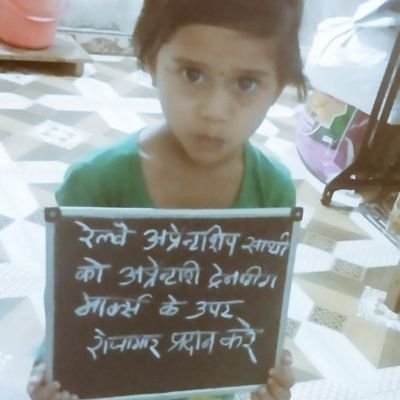 रेल्वे अप्रेन्टाशिप साथी
को अप्रेन्टाशी ट्रेनींग
मार्क्स के उपर
रोजागार प्रदान करे